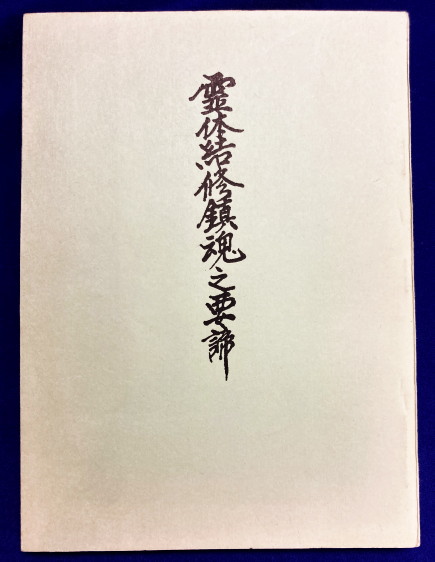 霊体結修鎮魂之要諦